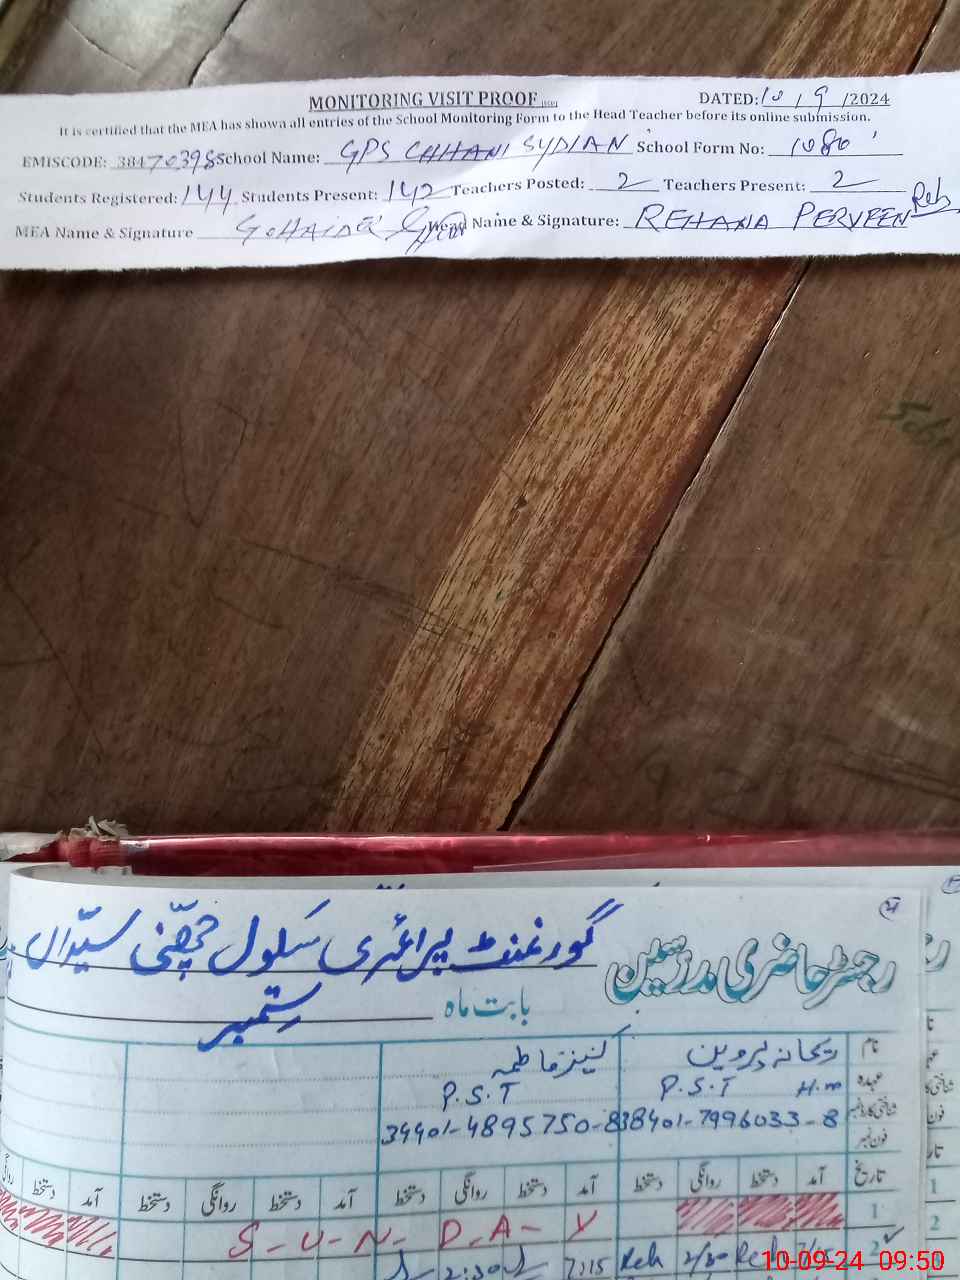 MONITORING VISIT PROOF
DATED: 10/9/2024
It is certified that the MEA has shown all entries of the School Monitoring Form to the Head Teacher before its online submission.
EMISCODE: 38470398 School Name: GPS CHHANI SYDIAN School Form No: 1080
Students Registered: 144 Students Present: 142 Teachers Posted: 2 Teachers Present: 2
MEA Name & Signature Head Name & Signature: REHANA PERVEEN Reh
رجسٹر حاضری مدرسین گورنمنٹ پرائمری سکول چھنی سیداں
بابت ماہ ستمبر
نام ریحانہ پروین کنیز فاطمہ
عہدہ H.m P.S.T P.S.T
شناختی کارڈ نمبر 38401-7996033-8 34401-4895750-8
فون نمبر
تاریخ آمد دستخط روانگی دستخط آمد دستخط روانگی دستخط آمد دستخط روانگی دستخط آمد دستخط روانگی
1 S-U-N-D-A-Y
2 Reh 2/30 Reh 7:15 2:30
10-09-24 09:50